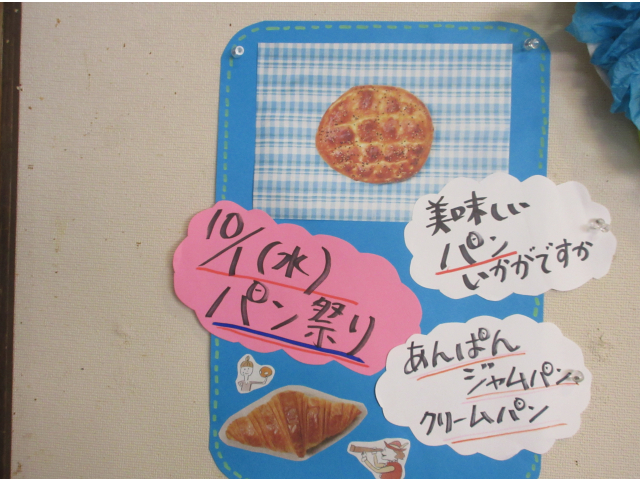 10/1(水)
パン祭り
美味しい
パン
いかがですか
あんぱん
ジャムパン
クリームパン